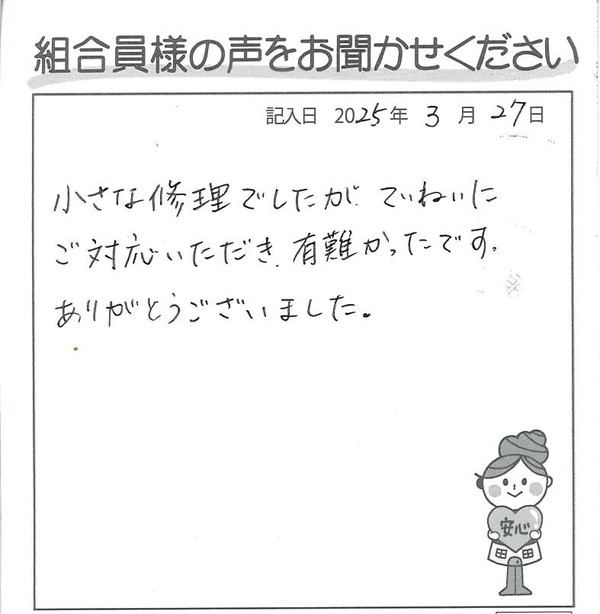 組合員様の声をお聞かせください
記入日 2025年 3月 27日
小さな修理でしたが、ていねいに
ご対応いただき、有難かったです。
ありがとうございました。
安心